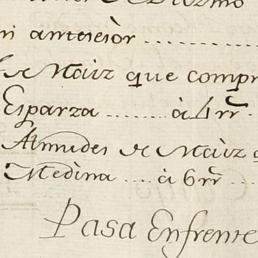 de Diezmo
ni anteseiòr ..........
de Maiz que compr
Esparza ...... à 4 rr.
Almudes de Maiz q
Medina .... à 6 rr ....
Pasa Enfrente